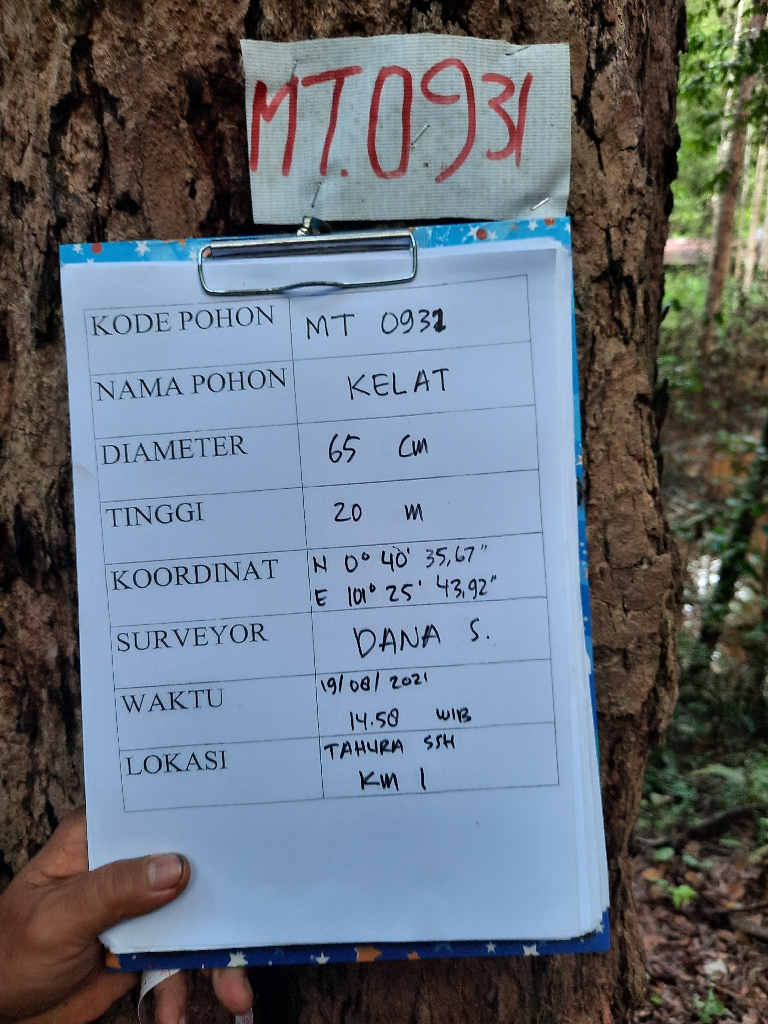 MT.0931
KODE POHON MT 0931
NAMA POHON KELAT
DIAMETER 65 Cm
TINGGI 20 m
KOORDINAT N 0° 40' 35,67"
E 101° 25' 43,92"
SURVEYOR DANA S.
WAKTU 19/08/2021
14.58 WIB
LOKASI TAHURA SSH
Km 1